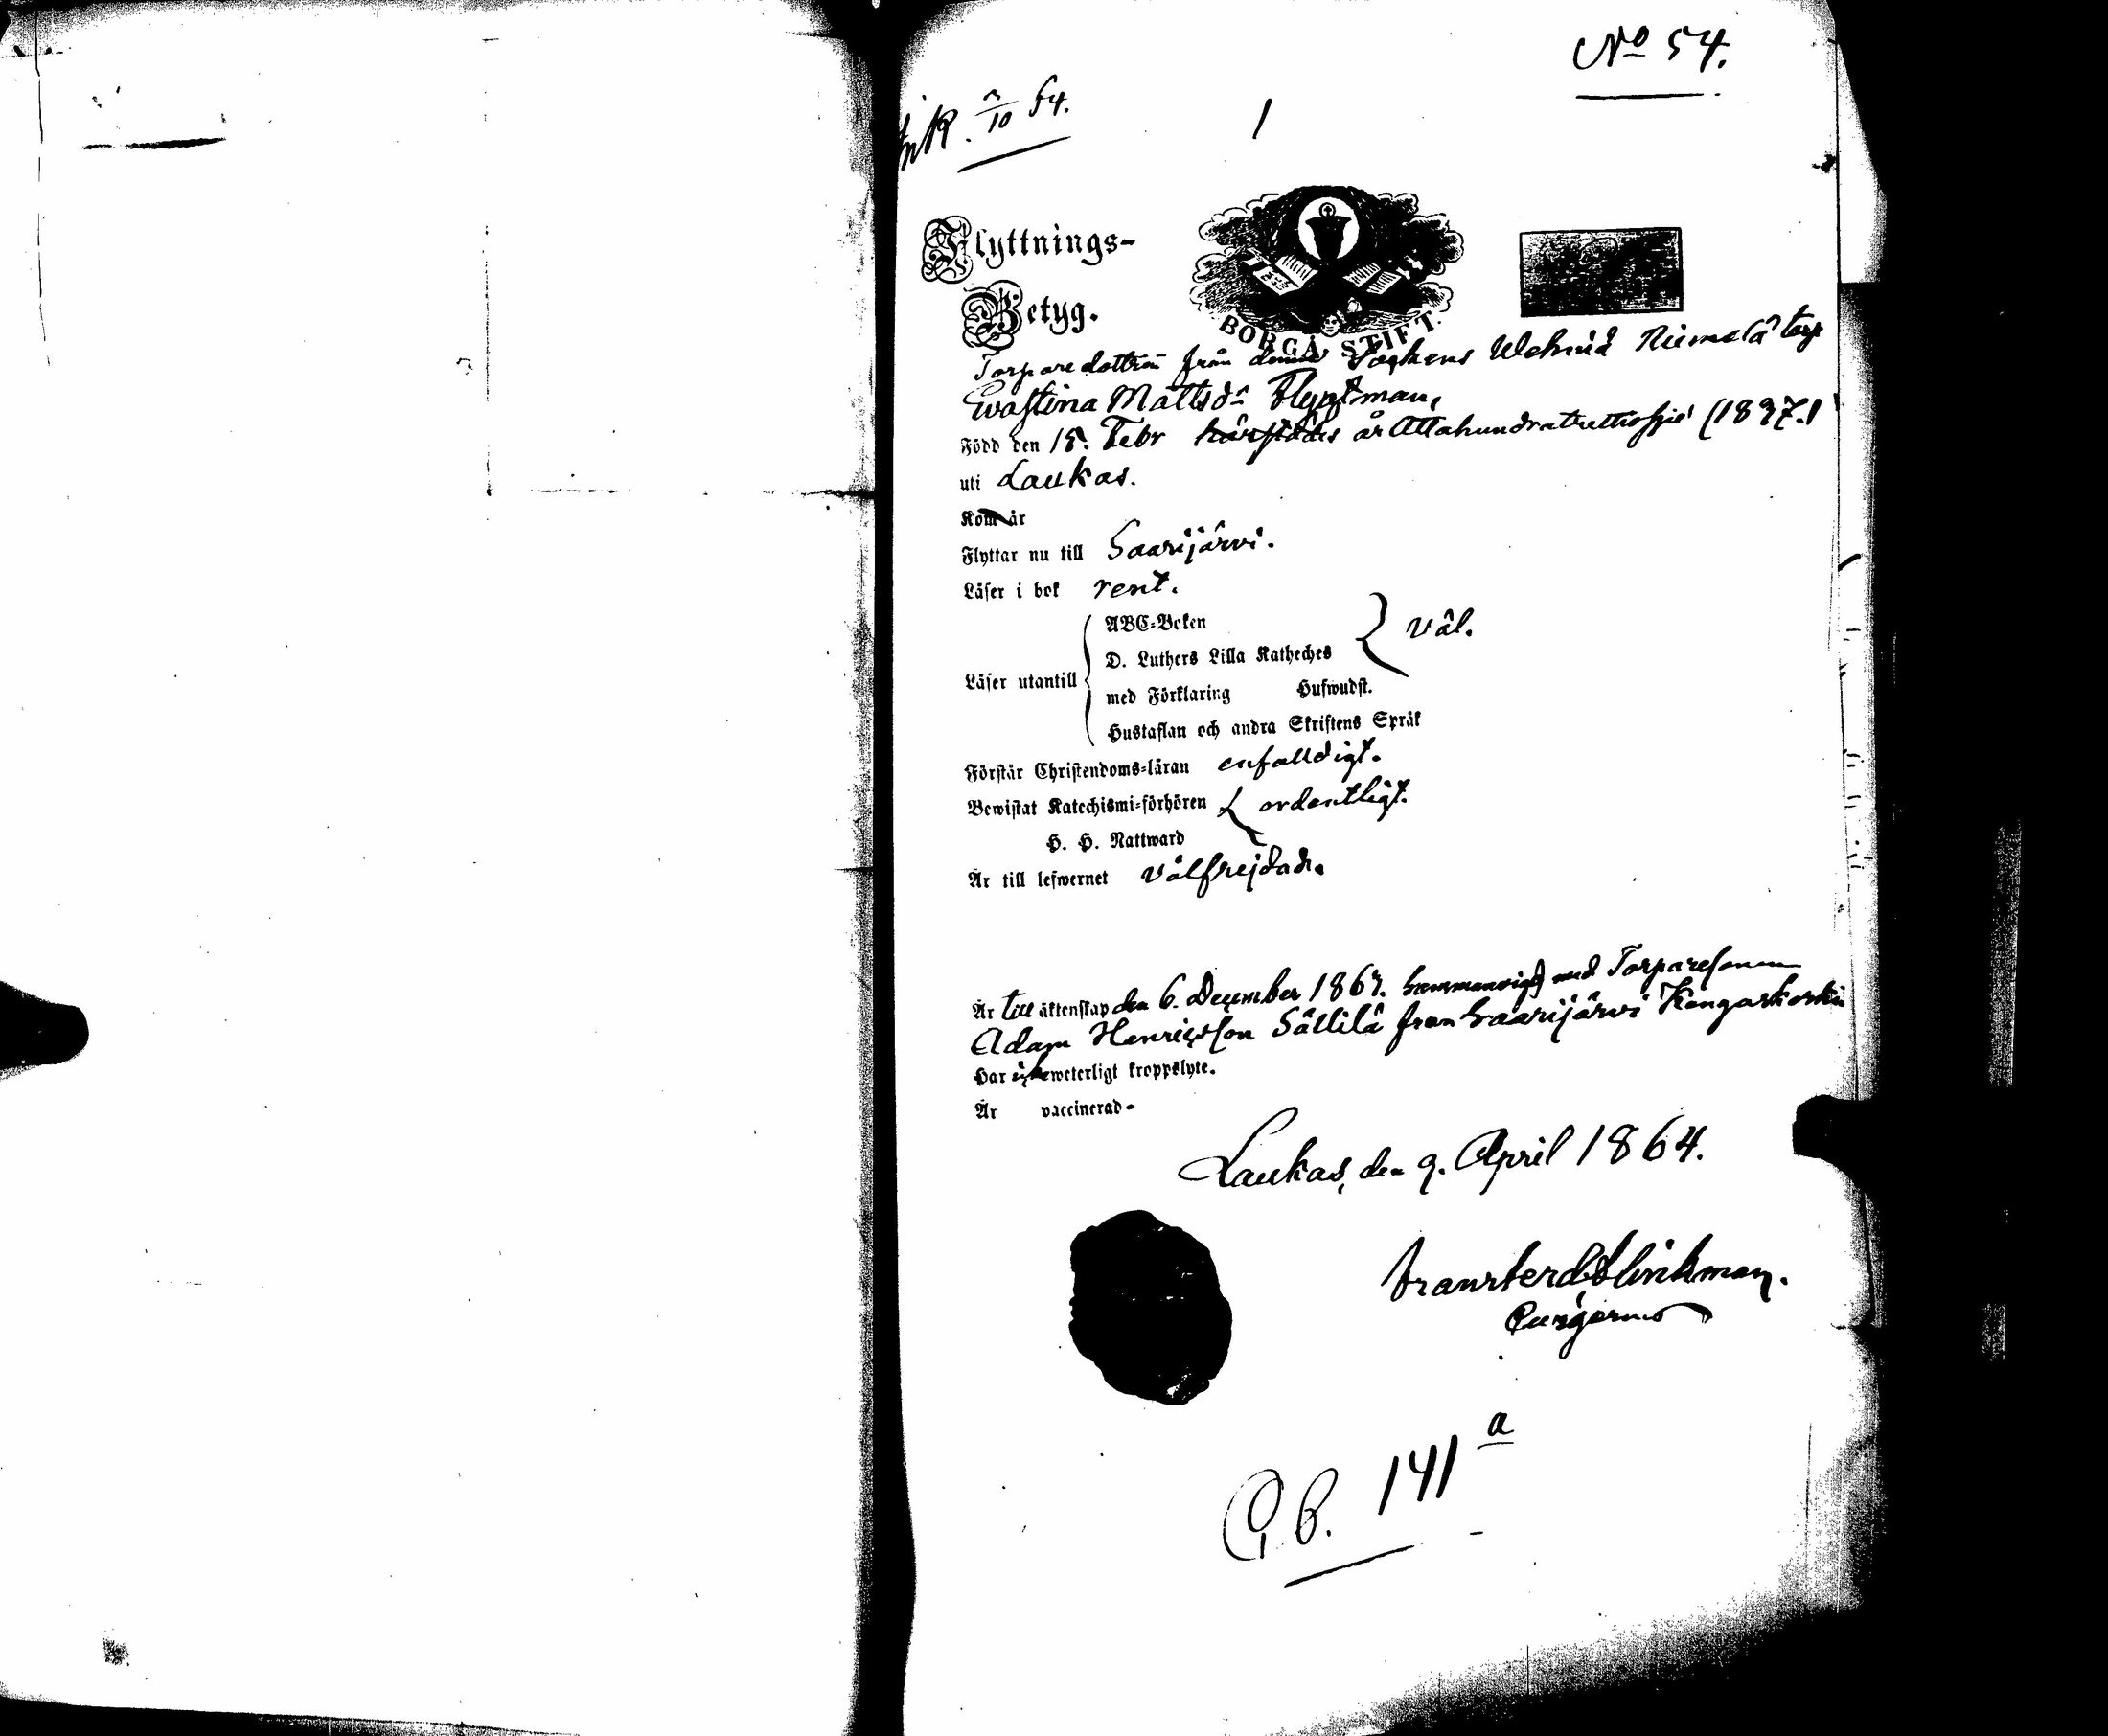 No 54.
Ink. /10 64.
1
Flyttnings-
Betyg.
BORGÅ STIFT.
Torparedottren från denna Sockens Wehniä Niimelä torp
Ewastina Mattsdr Flyktman,
Född den 15. Febr härstädes år Attahundratrettiosju (1837.)
uti Laukas.
Kom år
Flyttar nu till Saarijärvi.
Läser i bok rent.
Läser utantill
ABC-Boken
D. Luthers Lilla Katheches
med Förklaring Hufwudst.
Hustaflan och andra Skriftens Språk
väl.
Förstår Christendoms-läran enfalldigt.
Bewistat Katechismi-förhören ordentligt.
H. H. Nattward
Är till lefwernet välfrejdad.
Är till äktenskap den 6. December 1863. Sammanvigd med Torparesonen
Adam Henricsson Sällilä från Saarijärvi Kangaskoski
Har icke weterligt kroppslyte.
Är vaccinerad-
Laukas, den 9. April 1864.
Frans Ferd. Blinkman.
C. B. 141 a